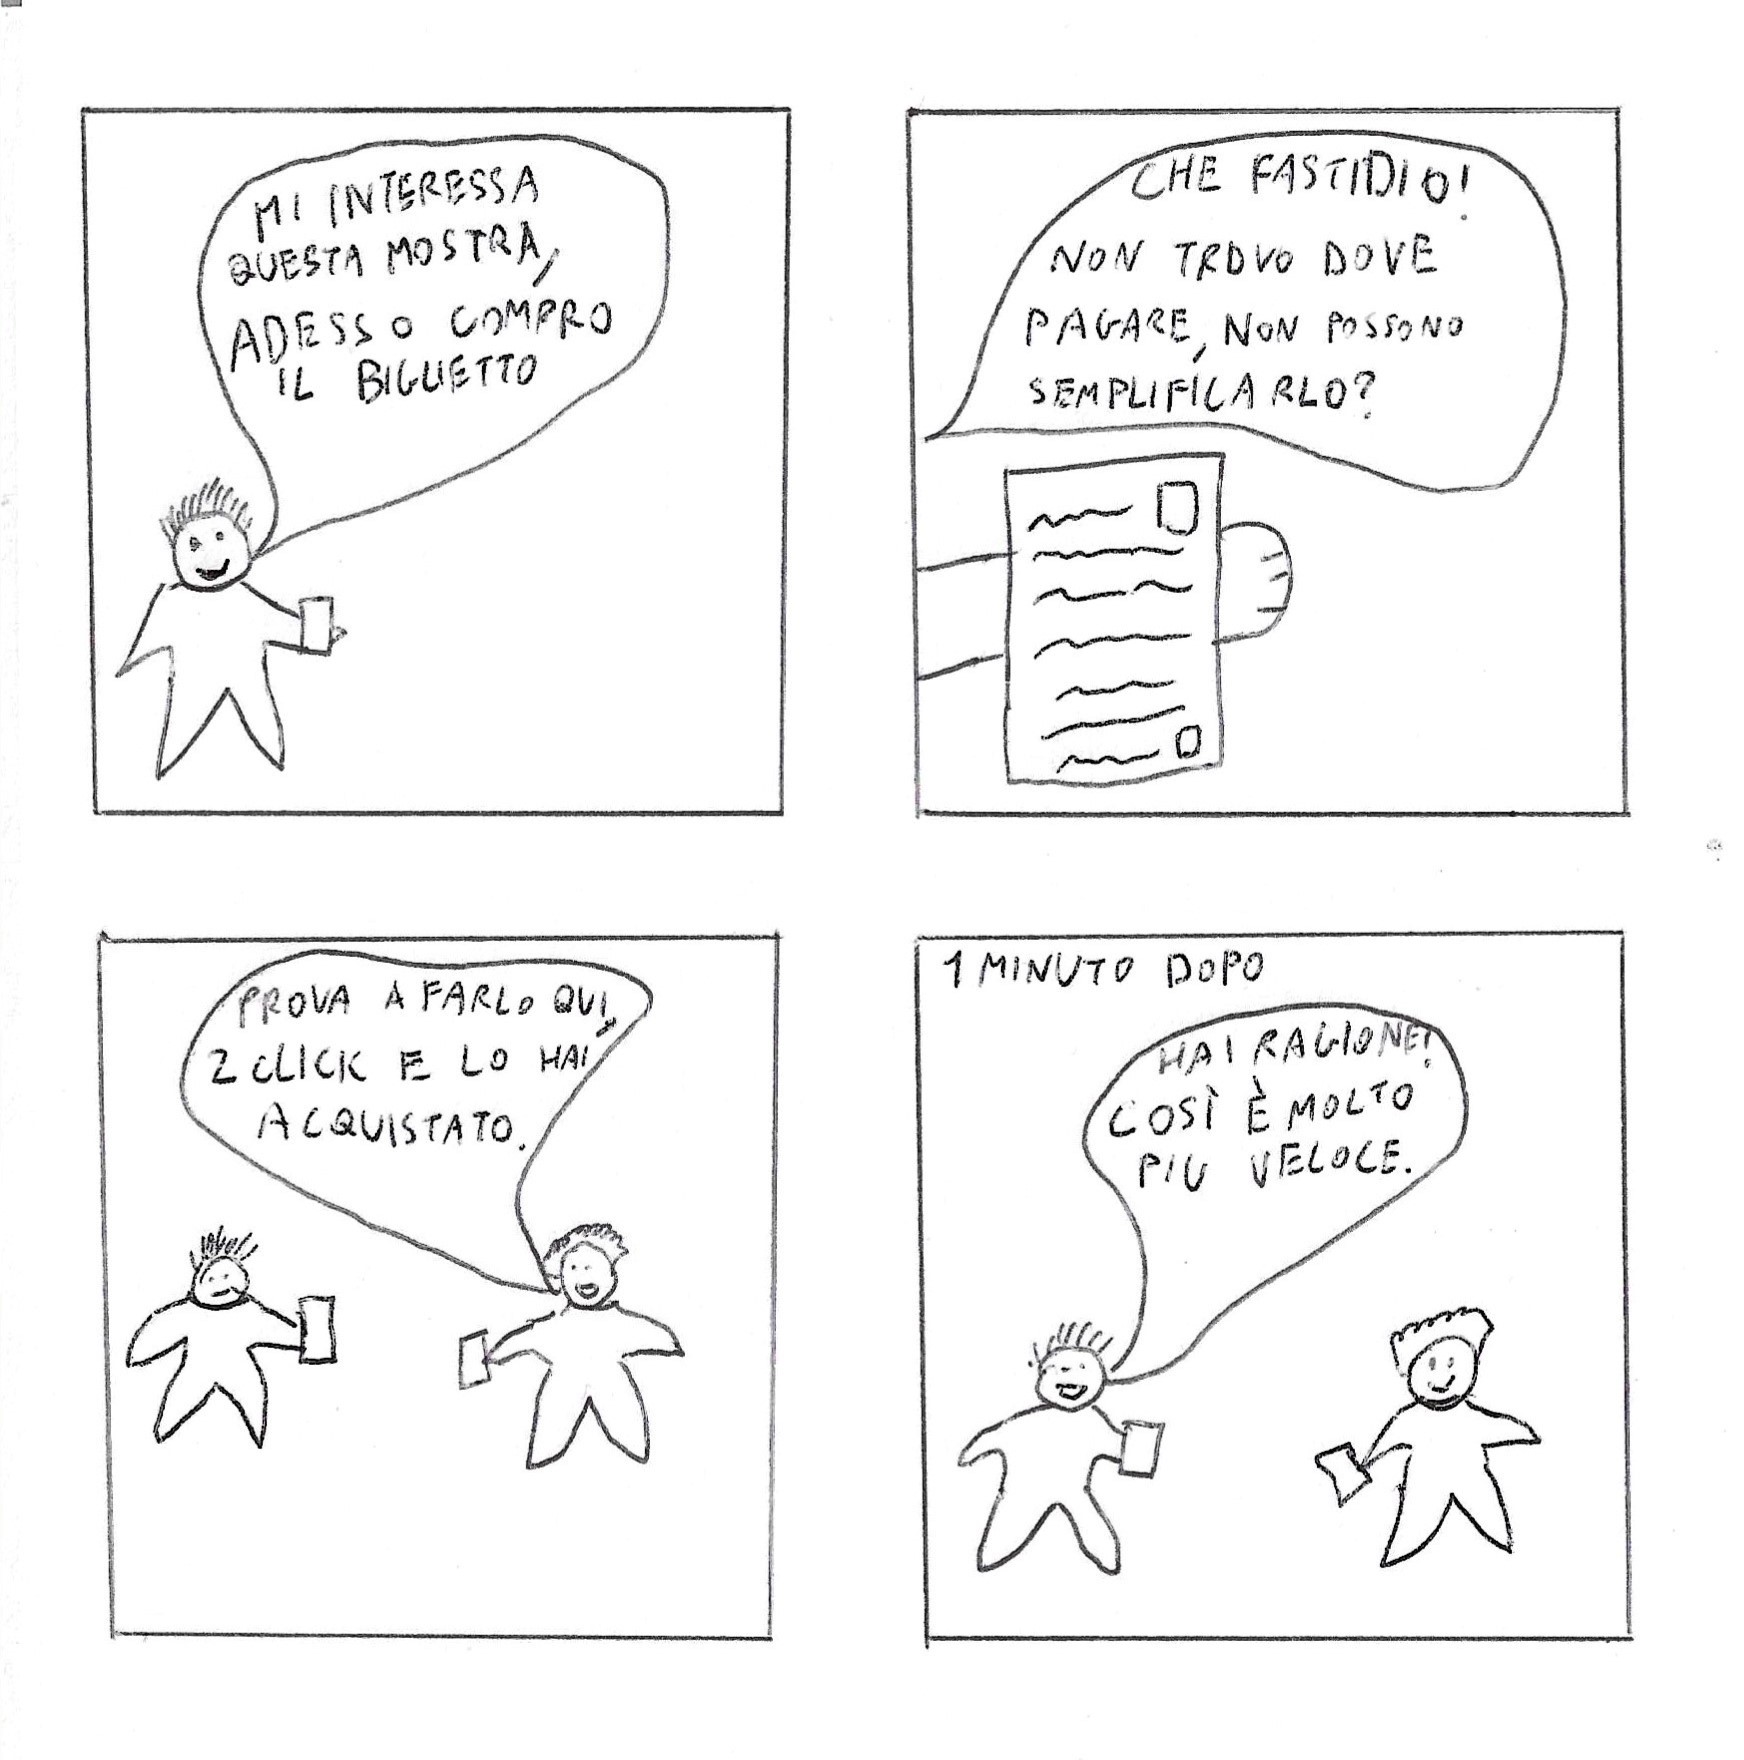 MI INTERESSA
QUESTA MOSTRA,
ADESSO COMPRO
IL BIGLIETTO
CHE FASTIDIO!
NON TROVO DOVE
PAGARE, NON POSSONO
SEMPLIFICARLO?
PROVA A FARLO QUI,
2 CLICK E LO HAI
ACQUISTATO.
1 MINUTO DOPO
HAI RAGIONE!
COSÌ È MOLTO
PIU VELOCE.